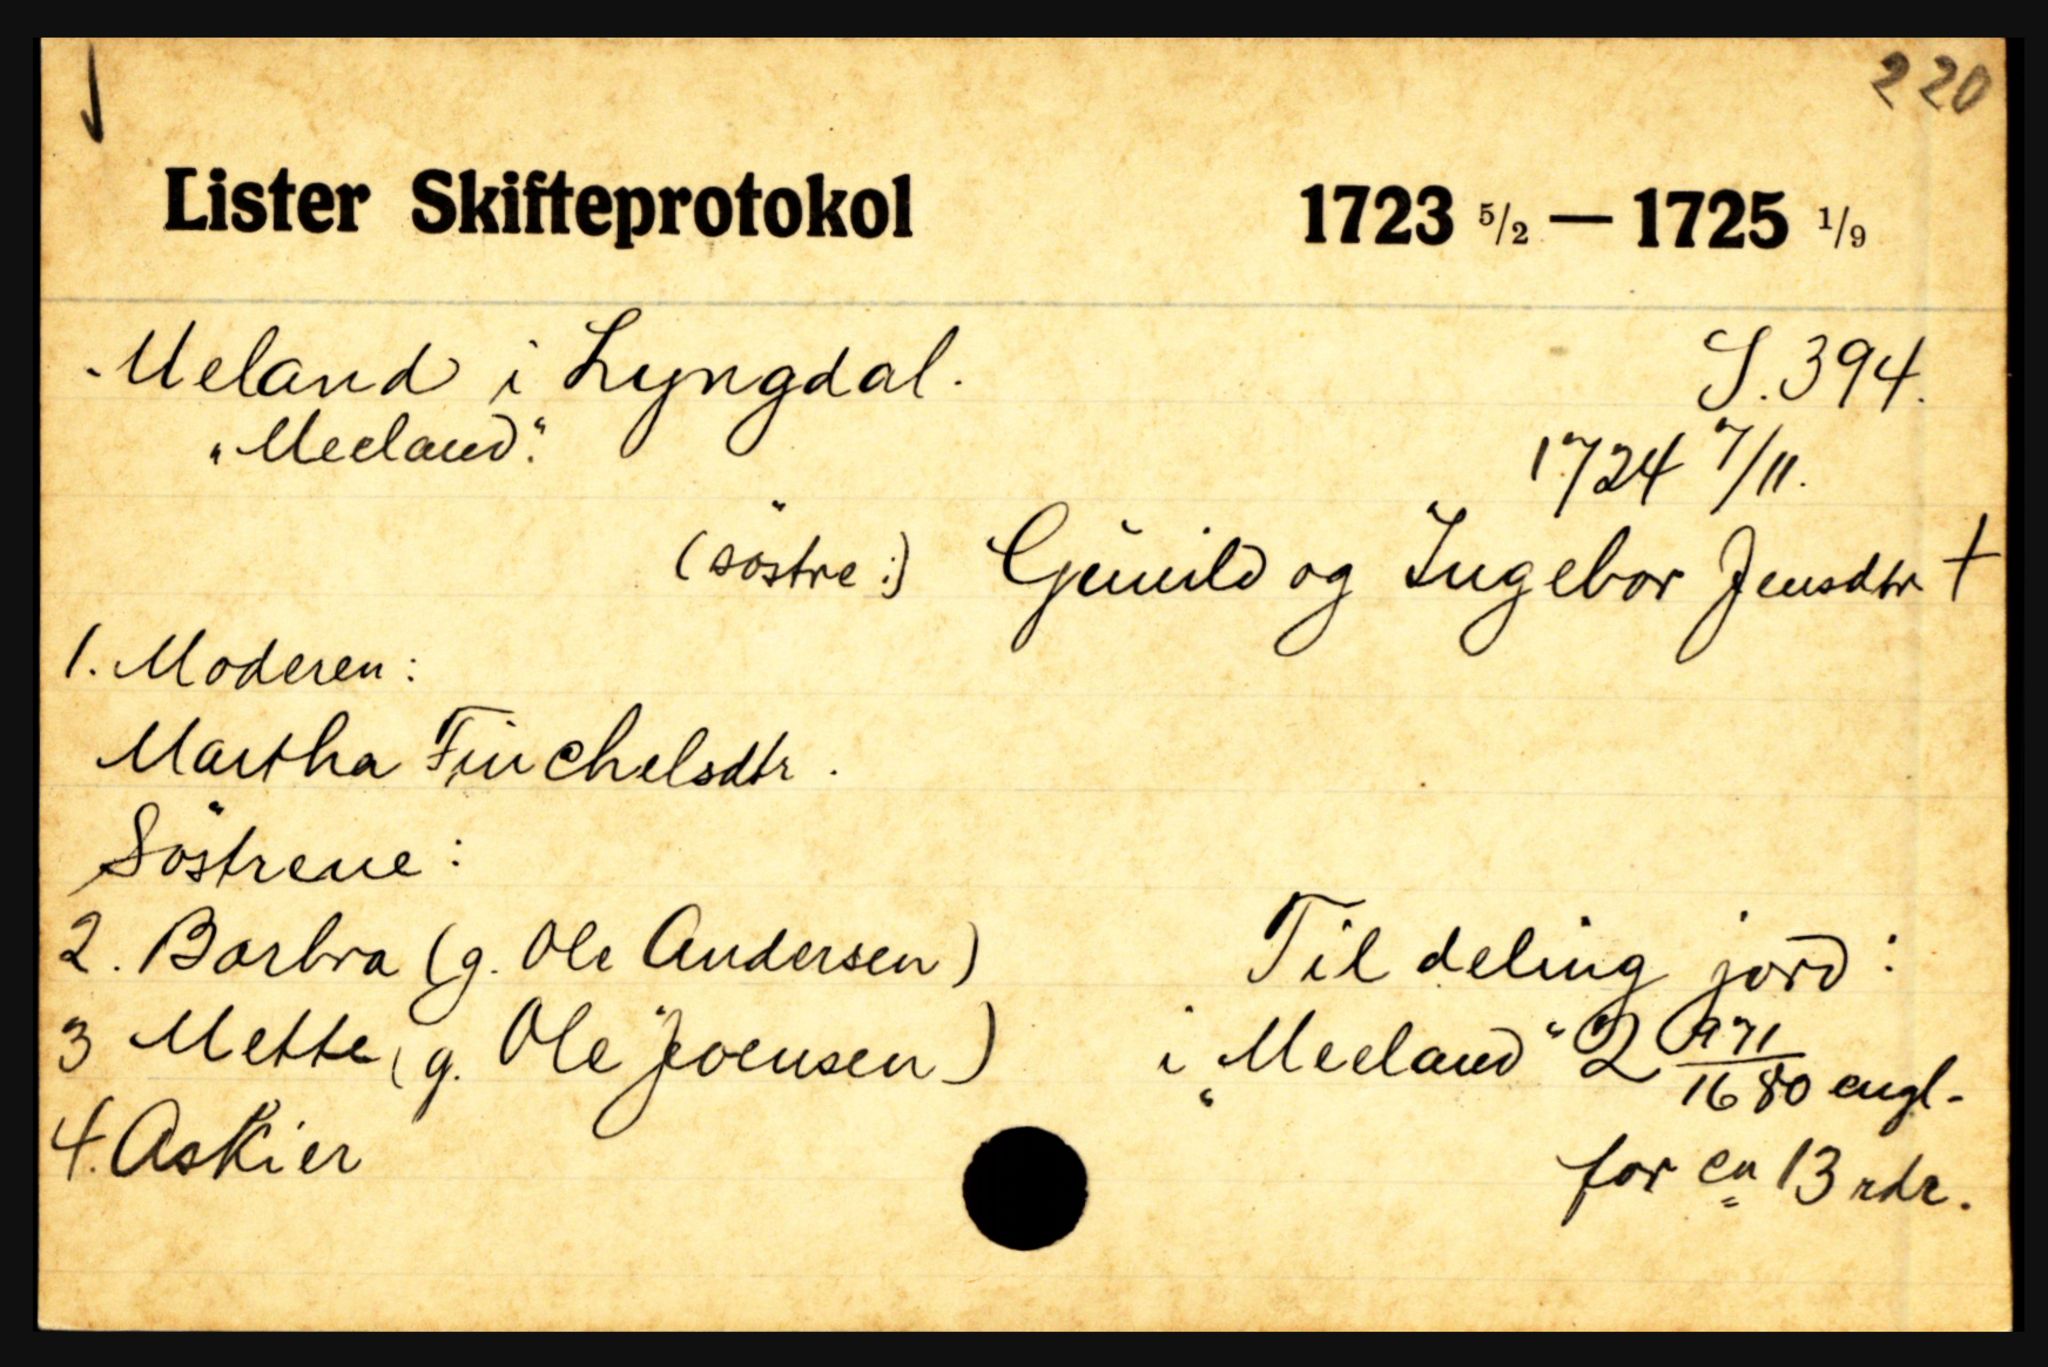 220
Lister Skifteprotokol 1723 5/2 — 1725 1/9
Meland i Lyngdal. S. 394.
"Meeland". 1724 7/11.
(söstre:) Gunild og Ingebor Jensdtr †
1. Moderen:
Martha Finchelsdtr.
Söstrene:
2. Barbra (g. Ole Andersen) Til deling jord:
3 Mette (g. Ole Joensen) i "Meeland" 2 971/1680 engl.
4. Askier for ca 13 rdr.